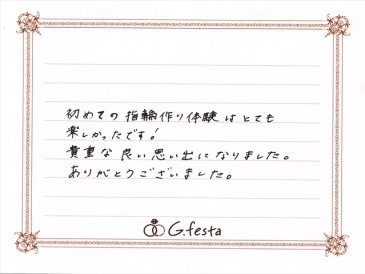 初めての指輪作り体験はとても
楽しかったです!
貴重な良い思い出になりました。
ありがとうございました。
G.festa